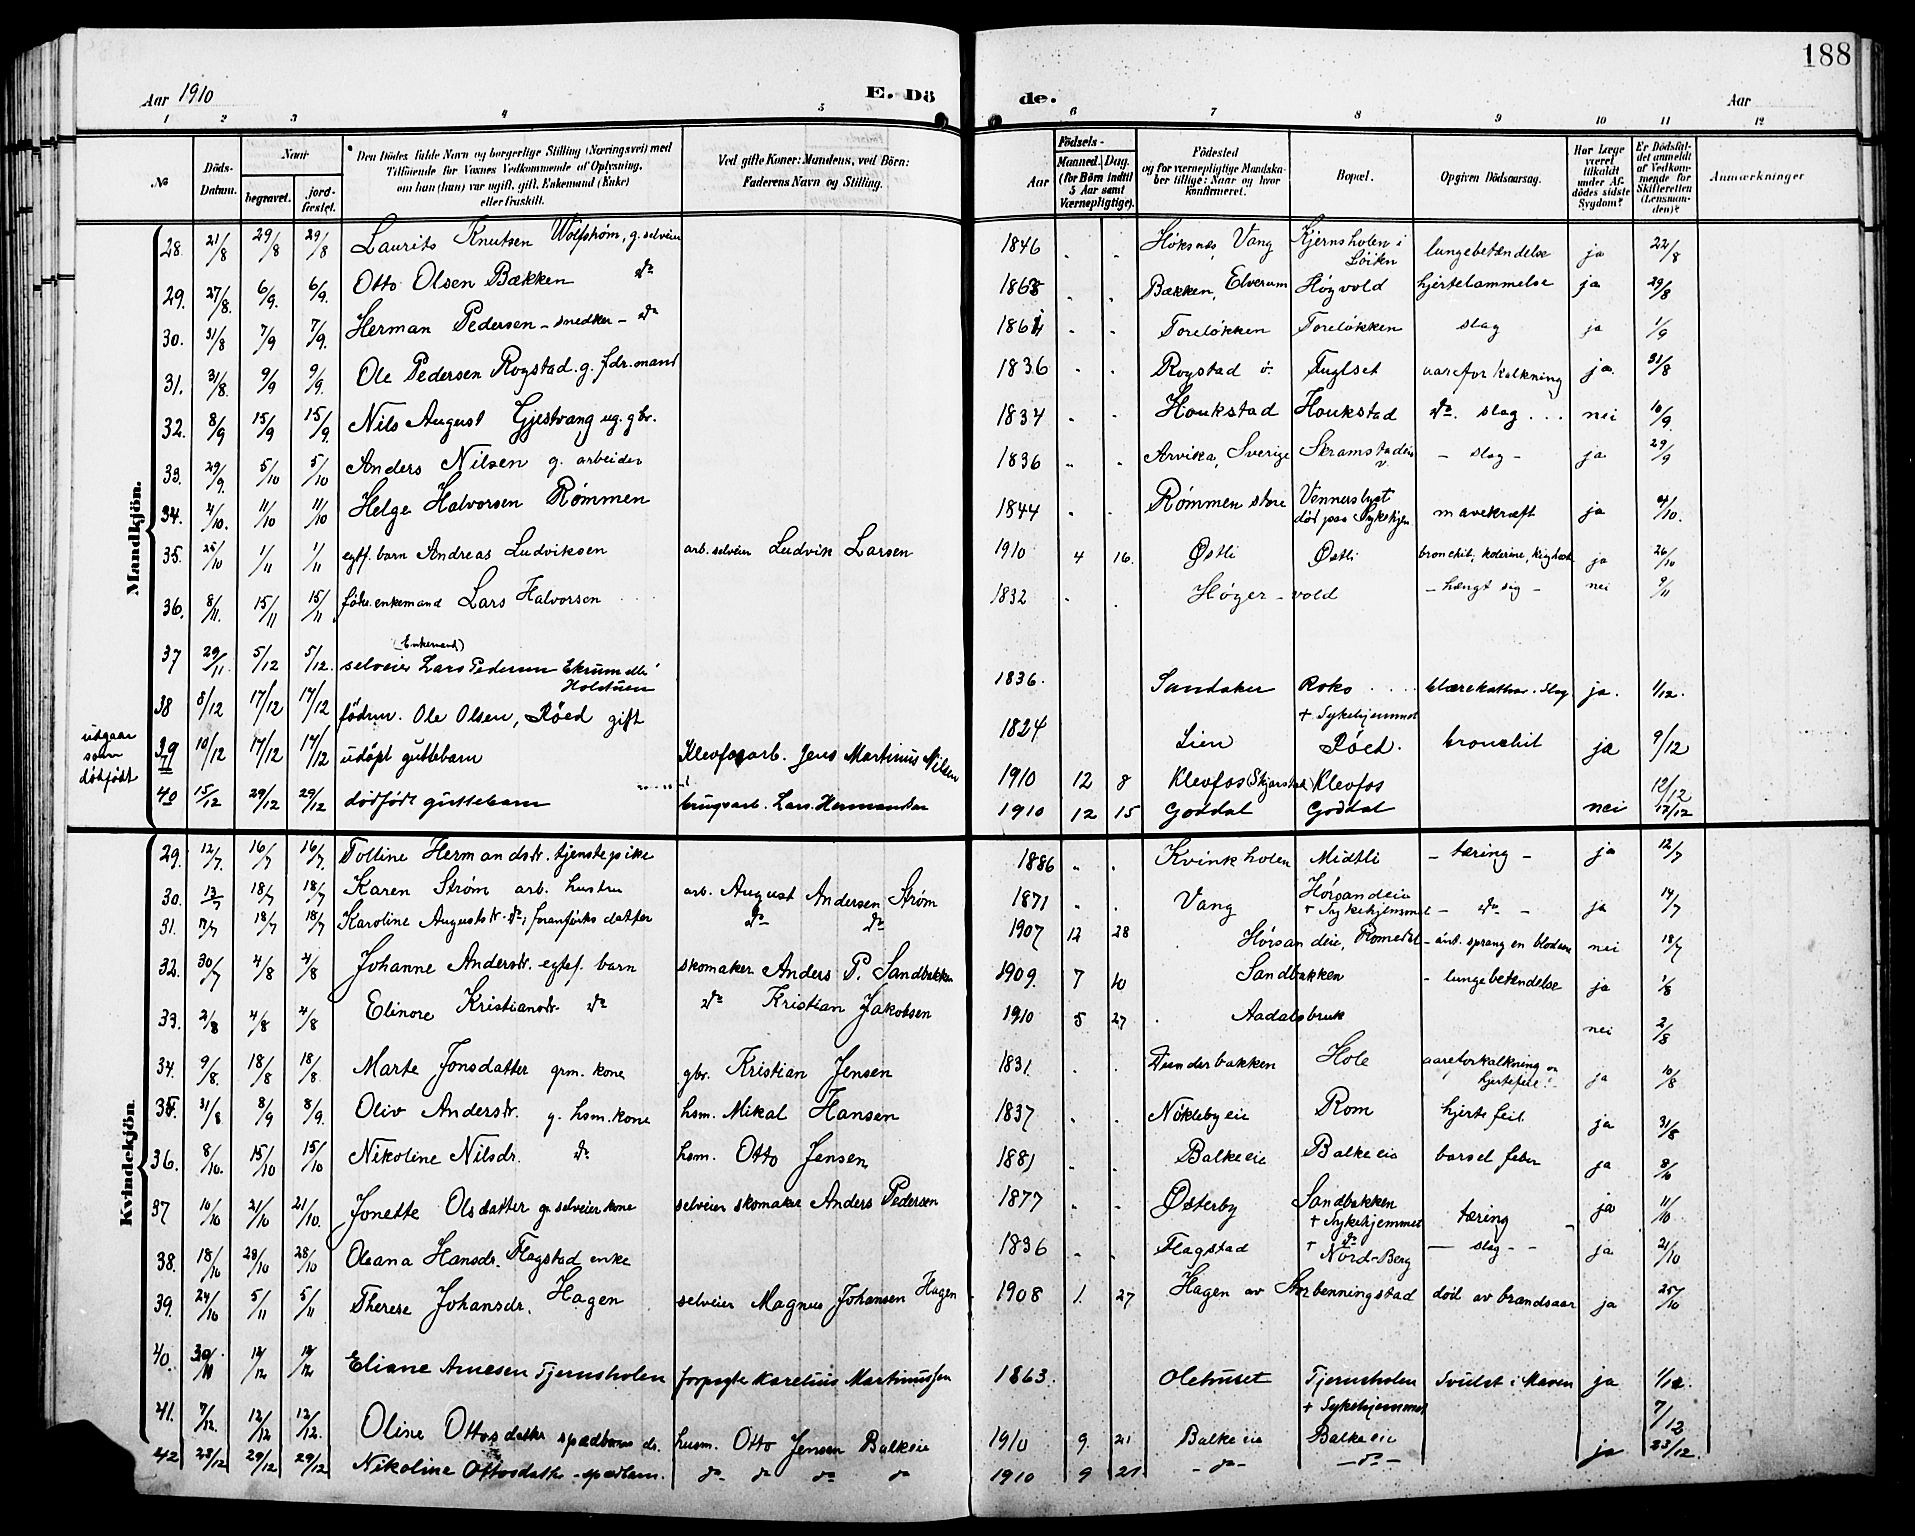 188
Aar 1910 E. Dö de. Aar
1 2 3 4 5 6 7 8 9 10 11 12
No
Döds-Datum.
Naar
begravet.
jord-fæstet.
Den Dödes fulde Navn og borgerlige Stilling (Næringsvei) med Tilföiende for Voxnes Vedkommende af Oplysning, om hun (han) var ugift, gift, Enkemand (Enke) eller fraskilt.
Ved gifte Koner: Mandens, ved Börn: Faderens Navn og Stilling.
Aar
Födsels-
Maaned. Dag.
(for Börn indtil 5 Aar samt Værnepligtige).
Födested og for værnepligtige Mandskaber tillige: Naar og hvor konfirmeret.
Bopæl.
Opgiven Dödsaarsag.
Har Læge været tilkaldt under Afdödes sidste Sygdom?
Er Dödsfaldet anmeldt af Vedkommende for Skifteretten (Lensmanden)?
Anmærkninger
Mandkjön.
28. 21/8 29/8 29/8 Laurits Knutsen Wolfstrøm, g. selveier 1846 Høksnes, Vang Kjernsholen i Løiten lungebetendelse ja 22/8
29. 27/8. 6/9. 6/9. Otto Olsen Bækken do 1865 Bækken, Elverum Høgvold hjertelammelse ja 29/8
30. 31/8 7/9 7/9. Herman Pedersen - snedker - do 1864 Toreløkken Toreløkken slag ja 1/9
31. 31/8. 9/9 9/9. Ole Pedersen Rogstad. g. fdr. mand 1836 Rogstad ö. Fuglset aareforkalkning ja. 31/8
32. 8/9 15/9 15/9. Nils August Gjestvang ug. gbr. 1834 Houkstad Houkstad do. slag nei 10/9.
33. 29/9. 5/10 5/10 Anders Nilsen g. arbeider 1836 Arvika, Sverige Skramstadeie v. - slag - ja 29/9
34. 4/10. 11/10 11/10 Helge Halvorsen Rømmen 1844 Rømmen store Vennerslyst død paa Sykehjem mavekræft ja 4/10.
35. 25/10 1/11 1/11 egtf. barn Andreas Ludviksen arb. selveier Ludvik Larsen 1910 4 16. Østli Østli bronchit, kolerine, kighoste ja 26/10
36. 8/11. 15/11 15/11 føds. enkemand Lars Halvorsen 1832 Høger-vold - hængt sig - nei 9/11
37 29/11. 5/12 5/12. (Enkemand) selveier Lars Pedersen Ekrum elle Holstuen 1836. Sandaker Roko blærekattar. slag. ja. 1/12.
38 8/12 17/12 17/12 födrm. Ole Olsen, Røed gift 1824 Lien + Sykehjemmet Røed. bronchit ja 9/12
utgaar som dödfödt
39 10/12 17/12 17/12 udøpt guttebarn Klevfosarb. Jens Martinius Nilsen 1910 12 8 Klevfos (Skjærstad) Klevfos 12/12
40 15/12 29/12 29/12 dødfødt guttebarn brugsarb. Lars Hermansen 1910 12 15 Goddal Goddal nei 17/12
Kvindekjön.
29. 12/7. 16/7 16/7. Tolline Hermandsdr. tjenstepike 1886 Kvinkholen Midtli - tæring - ja 12/7
30. 13/7 18/7 18/7 Karen Strøm arb. hustru arb. August Andersen Strøm 1871 Vang Hørsandeie + Sykehjemmet - do - ja 14/7
31. 18/7 18/7 Karoline Augustsdr. do, foranførtes datter do do 1907 12 28 Hørsandeie, Romedal - ant. sprang en blodaare nei 18/7
32. 30/7 4/8 4/8 Johanne Andersdr. egtef. barn skomaker Anders P. Sandbakken 1909. 7 10 Sandbakken - lungebetendelse ja 1/8
33. 2/8 4/8 4/8 Elinore Kristiansdr do do Kristian Jakobsen 1910 5 27 Aadalsbruk nei 2/8
34. 9/8. 18/8 18/8. Marte Jonsdatter grm. kone gbr. Kristian Jensen 1831 Dunderbakken Hole aareforkalkning og hjertefeil. ja 10/8
35. 31/8 8/9 8/9. Oliv Andersdr. g. hsm. kone hsm. Mikal Hansen 1837 Nøklebyeie Rom hjertefeil ja 31/8
36. 8/10. 15/10 15/10 Nikoline Nilsdr. do hsm. Otto Jensen 1881 Balkeeie Balkeeie barselfeber ja 8/10
37 10/10 21/10 21/10. Jonette Olsdatter g. selveier kone selveier skomaker Anders Pedersen 1877 Østerby Sandbakken + Sykehjemmet tæring ja 11/10
38. 18/10 28/10 28/10 Oleana Hansdr. Flagstad enke 1836 Flagstad + do Nord-Berg - slag - ja 21/10
39. 24/10 5/11 5/11 Therese Johansdr. Hagen selveier Magnus Johansen Hagen 1908 1. 27 Hagen av Storbenningstad død av brandsaar ja 25/10
40. 30/11 12/12 12/12 Eliane Arnesen Tjernsholen forpagter Karelius Martinussen 1863. Olehuset Tjernsholen + Sykehjemmet Svulst i Maven ja 1/12.
41. 7/12. 12/12 12/12. Oline Ottosdatter spædbarns dr. husm. Otto Jensen Balkeeie 1910 9. 21 Balkeeie Balkeeie 7/12
42 23/12 29/12 29/12 Nikoline Ottosdatter - spædbarn. do do do do 1910 9 21 - do - - do - ja 23/12.